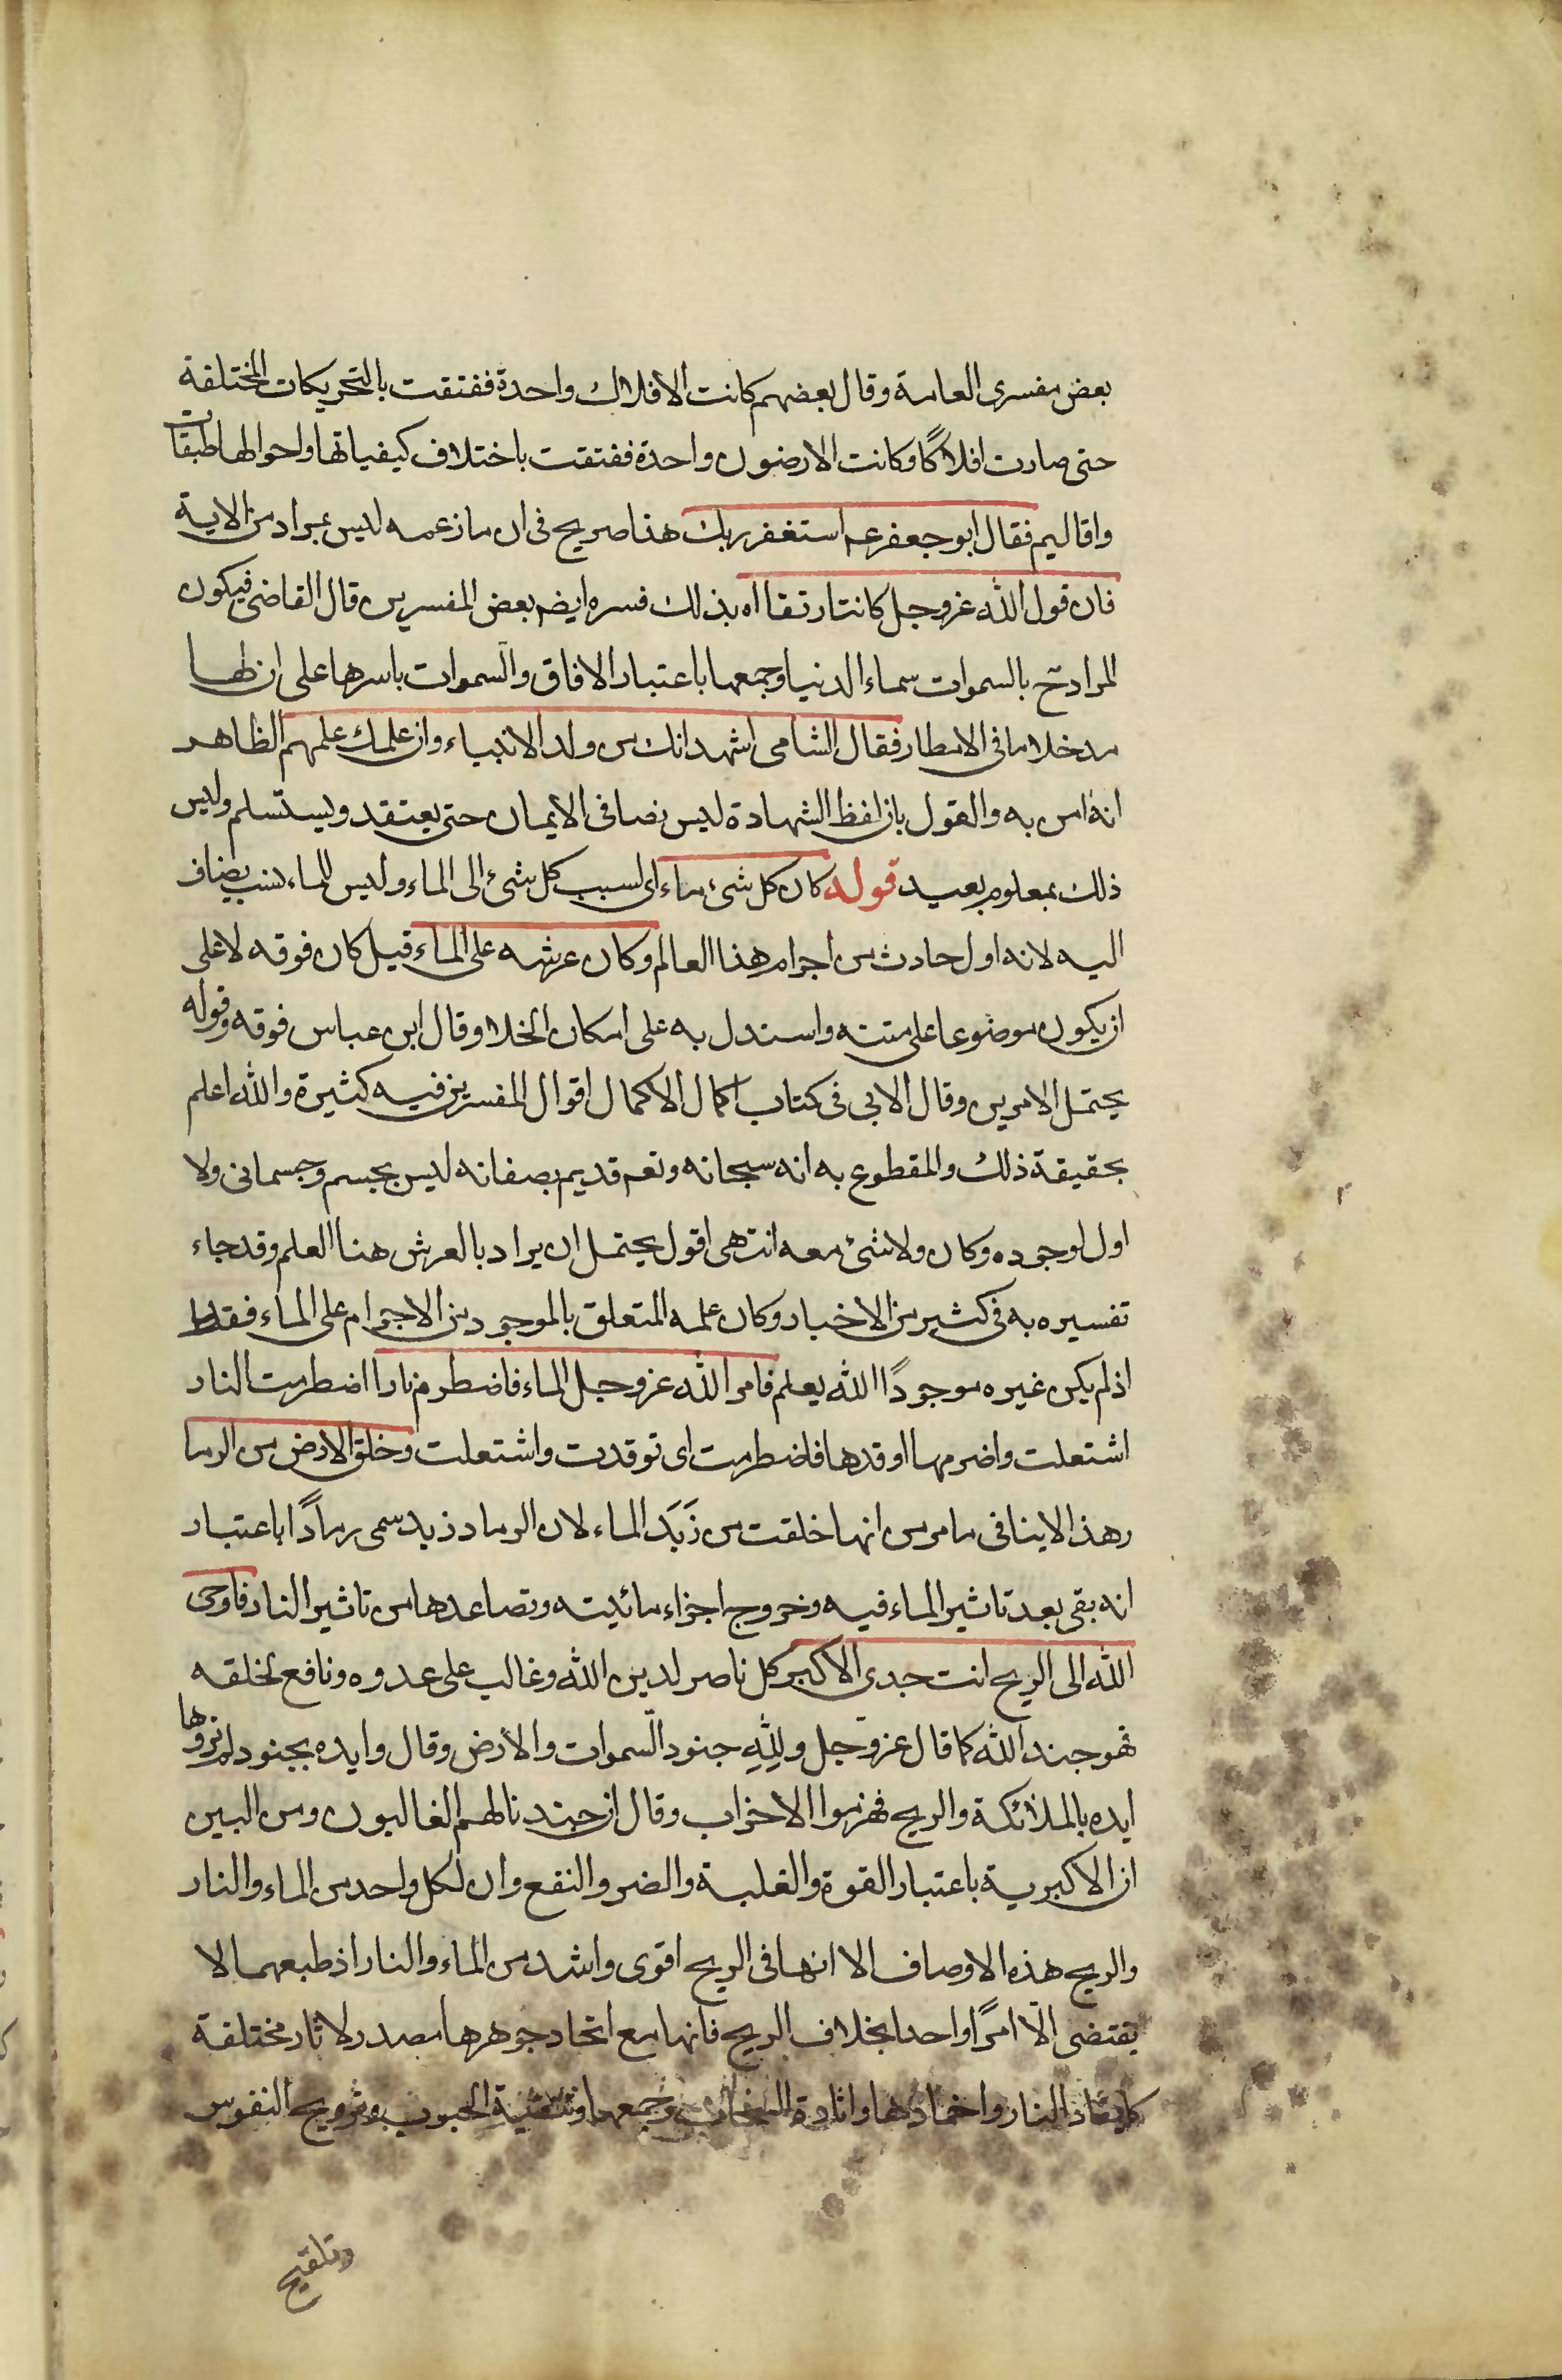 بعض مفسرى العامة وقال بعضهم كانت الافلاك واحدة ففتقت بالتحريكات المختلفة
حتى صارت افلاكًا وكانت الارضون واحدة ففتقت باختلاف كيفياتها واحوالها طبقات
واقاليم فقال ابو جعفر عم استغفر ربك هذا صريح فى ان ما زعمه ليس بمراد من الاية
فان قول الله عز وجل كانتا رتقا اه بذلك فسره ايضم بعض المفسرين قال القاضى فيكون
المراد تح بالسموات سماء الدنيا وجمعها باعتبار الافاق والسموات باسرها على ان لها
مدخلا ما فى الامطار فقال الشامى اشهد انك من ولد الانبياء وان علمك علمهم الظاهر
انه امن به والقول بان لفظ الشهادة ليس نصا فى الايمان حتى يعتقد ويستسلم وليس
ذلك بمعلوم بعيد قوله كان كل شىء ماء اى لسبب كل شئ الى الماء وليس للماء نسب يضاف
اليه لانه اول حادث من اجرام هذا العالم وكان عرشه على الماء قيل كان فوقه لا على
ان يكون موضوعا على متنه واستدل به على امكان الخلا وقال ابن عباس فوقه وقوله
يحتمل الامرين وقال الابى فى كتاب اكمال الاكمال اقوال المفسرين فيه كثيرة والله اعلم
بحقيقة ذلك والمقطوع به انه سبحانه وتعم قديم بصفاته ليس بجسم وجسمانى ولا
اول لوجوده وكان ولا شئ معه انتهى اقول يحتمل ان يراد بالعرش هنا العلم وقد جاء
تفسيره به فى كثير من الاخبار وكان علمه المتعلق بالموجود من الاجرام على الماء فقط
اذ لم يكن غيره موجودًا الله يعلم فامر الله عز وجل الماء فاضطرم نارا اضطرمت النار
اشتعلت واضرمها اوقدها فاضطرمت اى توقدت واشتعلت وخلق الارض من الرما
رهذا لاينافى ما مر من انها خلقت من زَبَد الماء لان الرماد زبد سمى رمادًا باعتبار
انه بقى بعد تاثير الماء فيه وخروج اجزاء مائيته وتصاعدها من تاثير النار فاوحى
الله الى الريح انت جندى الاكبر كل ناصر لدين الله وغالب على عدوه ونافع لخلقه
فهو جند الله كما قال عز وجل وللهِ جنود السّموات والأرض وقال وايده بجنود لم تروها
ايده بالملائكة والريح فهزموا الاحزاب وقال ان جندنا لهم الغالبون ومن البين
ان الاكبرية باعتبار القوة والغلبة والضر والنفع وان لكل واحد من الماء والنار
والريح هذه الاوصاف الا انها فى الريح اقوى واشد من الماء والنار اذ طبعهما لا
يقتضى الّا امرًا واحدا بخلاف الريح فانها مع اتحاد جوهرها مصدر لاثار مختلفة
النار واخمادها واثارة السحاب وجمعها وتنقية الحبوب وترويح النفوس
وتلقيح